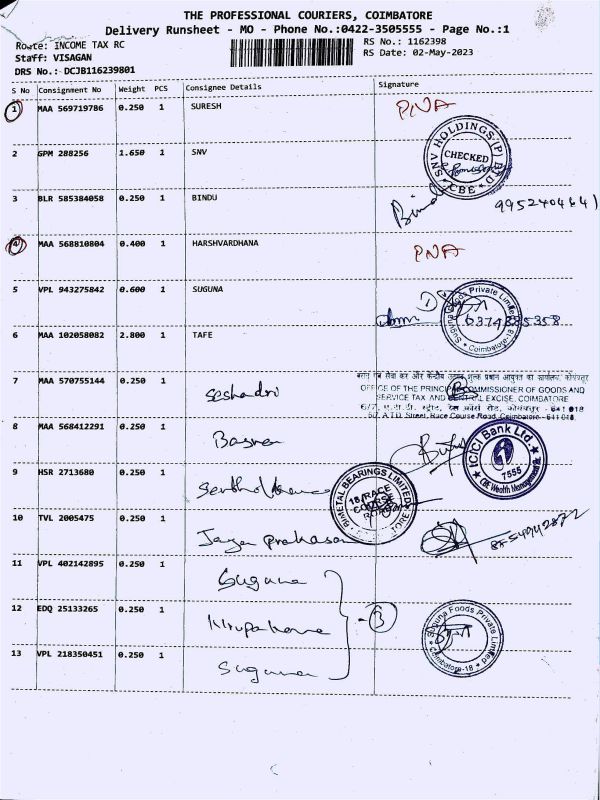 THE PROFESSIONAL COURIERS, COIMBATORE
Delivery Runsheet - MO - Phone No.:0422-3505555 - Page No.:1
Route: INCOME TAX RC
RS No.: 1162398
Staff: VISAGAN
RS Date: 02-May-2023
DRS No.: DCJB116239801
S No Consignment No Weight PCS Consignee Details Signature
1 MAA 569719786 0.250 1 SURESH PNA
2 GPM 288256 1.650 1 SNV
SNV HOLDINGS (P) LTD CHECKED CBE
3 BLR 585384058 0.250 1 BINDU 9952404641
4 MAA 568810804 0.400 1 HARSHVARDHANA PNA
5 VPL 943275842 0.600 1 SUGUNA
Suguna Foods Private Limited Coimbatore-18
6374385358
6 MAA 102058082 2.800 1 TAFE
7 MAA 570755144 0.250 1 Seshadri
OFFICE OF THE PRINCIPAL COMMISSIONER OF GOODS AND
SERVICE TAX AND CENTRAL EXCISE, COIMBATORE
6/7, ए.टी.डी. स्ट्रीट, रेस कोर्स रोड, कोयंबत्तूर - 641 018
6/7, A.T.D. Street, Race Course Road, Coimbatore - 641 018.
8 MAA 568412291 0.250 1
ICICI Bank Ltd. 7555 CBE Wealth Management Br.
9 HSR 2713680 0.250 1
BIMETAL BEARINGS LIMITED 18, RACE COURSE ROAD
10 TVL 2005475 0.250 1 Jaya Prakasan
11 VPL 402142895 0.250 1 Suguna
12 EDQ 25133265 0.250 1 3
Suguna Foods Private Limited Coimbatore-18
13 VPL 218350451 0.250 1 Suguna